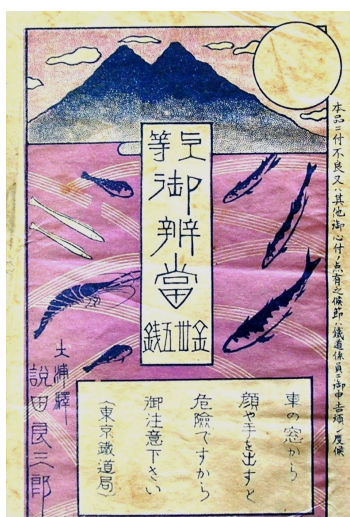 本品ニ付不良又ハ其他御心付ノ点有之候節ハ鐵道係員ニ御申告煩ハ度候
上等
御辨當
金卅五錢
車の窓から
顔や手を出すと
危險ですから
御注意下さい
（東京鐵道局）
土浦驛
説田民三郎